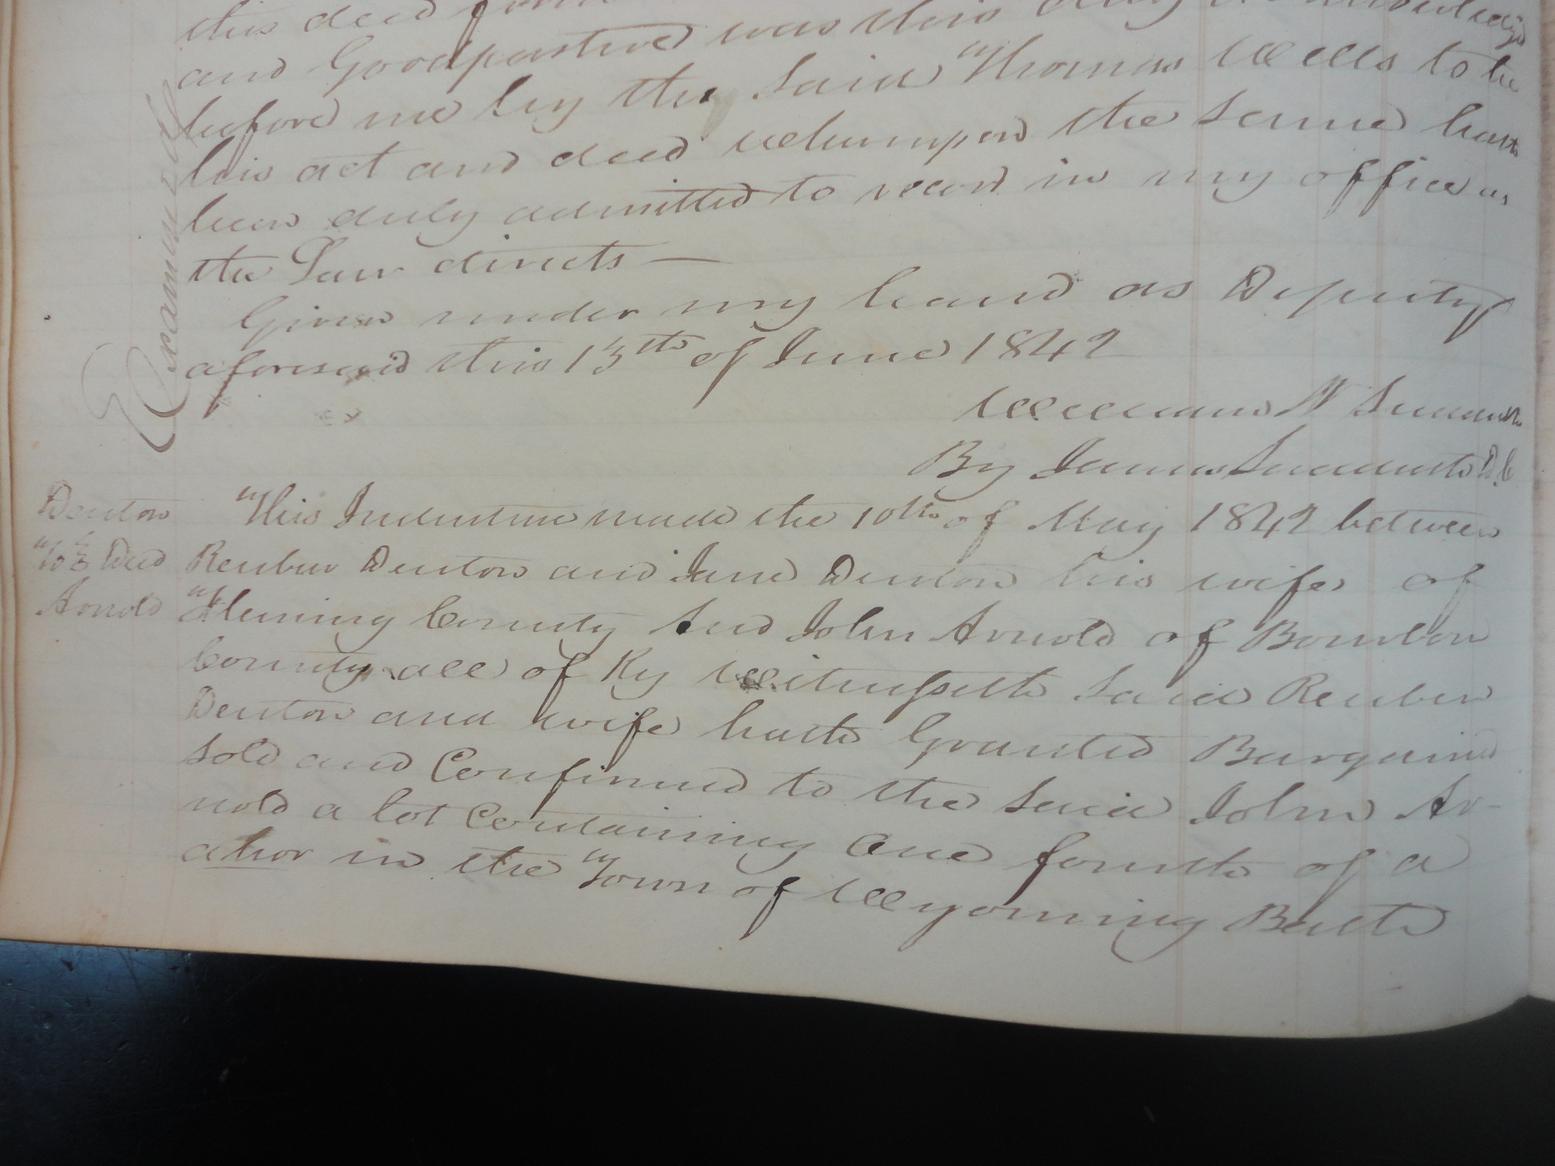 this deed from
and Goodpasture was this day acknowledged
before me by the said Thomas Wells to be
his act and deed whumpon the same hath
been duly admitted to record in my office as
the Law directs —
Given under my hand as Deputy
aforesaid this 13th of June 1842
William W Sudduth
By James Sudduth D.C
Examined
Denton
To } Deed
Arnold
This Indenture made the 10th of May 1842 between
Reuben Denton and Jane Denton his wife of
Fleming County And John Arnold of Bourbon
County all of Ky Witnesseth Said Reuben
Denton and wife hath Granted Bargained
Sold and Confirmed to the Said John Ar-
nold a lot Containing One fourth of a
in the Town of Wyoming Bath